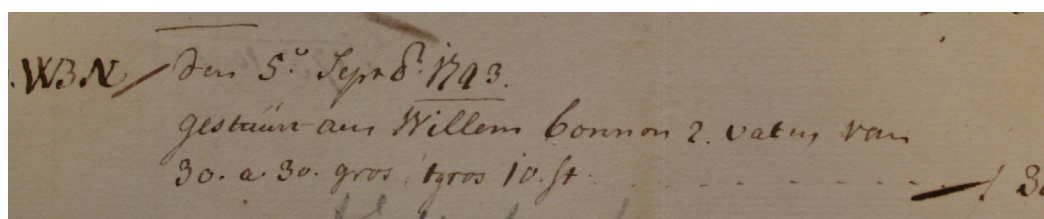 WBN / den 5.e Sepr 1793.
gestuurt aan Willem Connon 2. vaten van
30. a. 30. gros tgros 10. st. - - - - - - - - - f 30